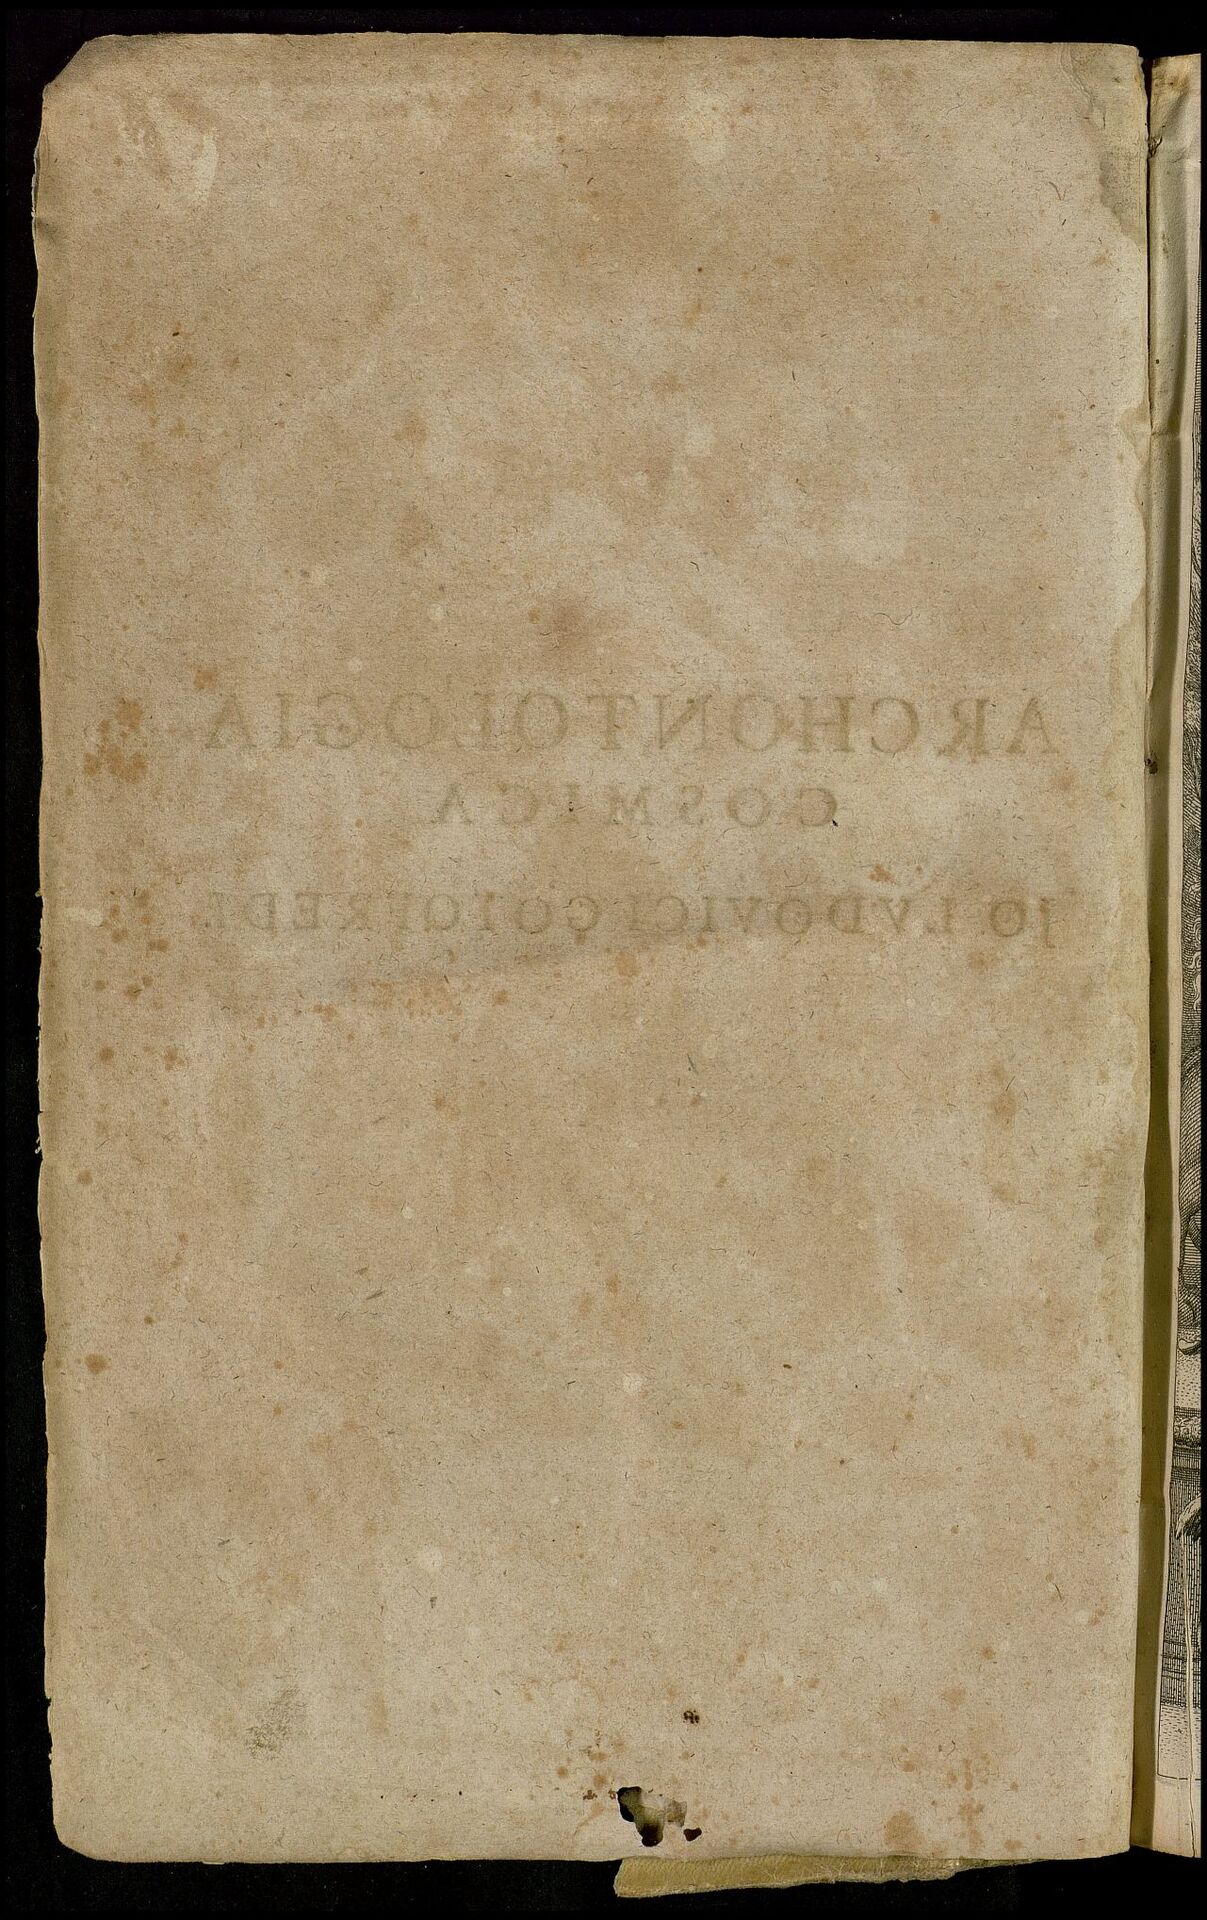 ARCHONTOLOGIA
COSMICA
JO. LVDOVICI GOTOFREDI.